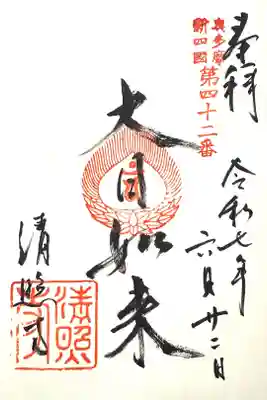 奉拝
奥多摩
新四国
第四十二番
令和七年
六月廿二日
大日如来
清照寺
清照